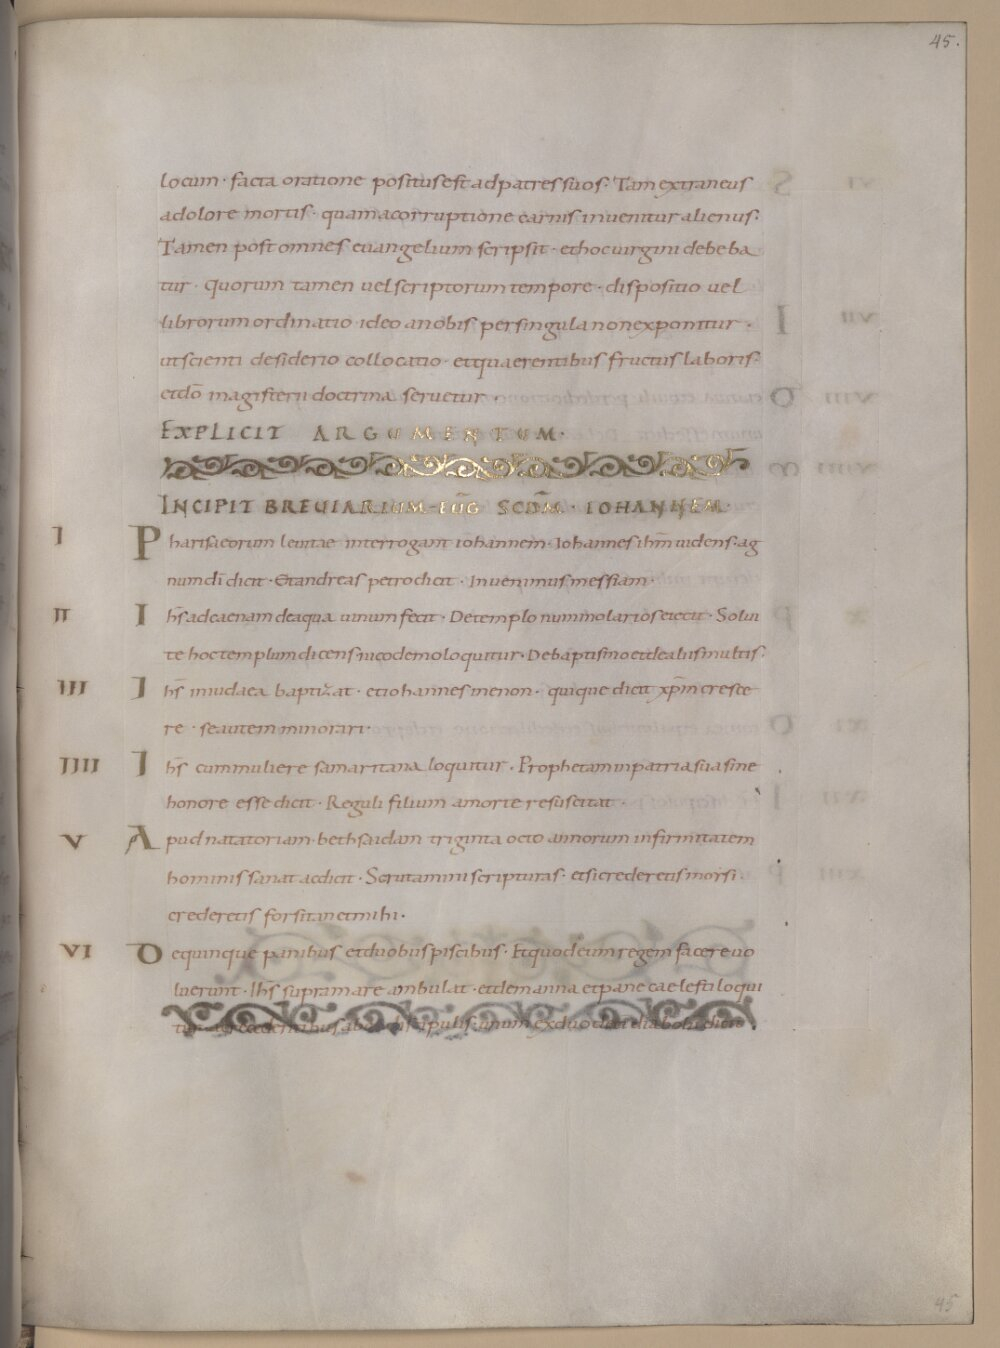 45.
locum · facta oratione positus est ad patres suos · Tam extraneus
a dolore mortis · quam a corruptione carnis invenitur alienus ·
Tamen post omnes euangelium scripsit · et hoc uirgini debeba
tur · quorum tamen uel scriptorum tempore · dispositio uel
librorum ordinatio ideo a nobis per singula non exponitur ·
ut scienti desiderio collocatio · et quaerentibus fructus laboris ·
et dō magisterii doctrina seruetur ·
EXPLICIT ARGUMENTUM ·
INCIPIT BREUIARIUM EUG̅ SCDM̅ · IOHANNEM ·
I Pharisaeorum leuitae interrogant iohannem · Iohannes ihm̅ uidens · ag
num dī dicit · Et andreas petro dicit · Inuenimus messiam ·
II Ihs̅ ad caenam de aqua uinum fecit · De templo nummolarios eiecit · Solui
te hoc templum dicens · nicodemo loquitur · De baptismo et de aliis multis ·
III Ihs̅ in iudaea baptizat · et iohannes in enon · qui que dicit xpm̅ cresce
re · se autem minorari ·
IIII Ihs̅ cum muliere samaritana loquitur · Prophetam in patria sua sine
honore esse dicit · Reguli filium a morte resuscitat ·
V Apud natatoriam · bethsaidam triginta octo annorum infirmitatem
hominis sanat ac dicit · Scrutamini scripturas · et si crederetis morsi ·
crederetis forsitan et mihi ·
VI De quinque panibus et duobus piscibus · Et quod eum regem facere uo
luerunt · Ihs̅ supra mare ambulat · et de manna et pane caelesti loqui
tur · discipulis · unum ex duodecim diabolum dicit
45